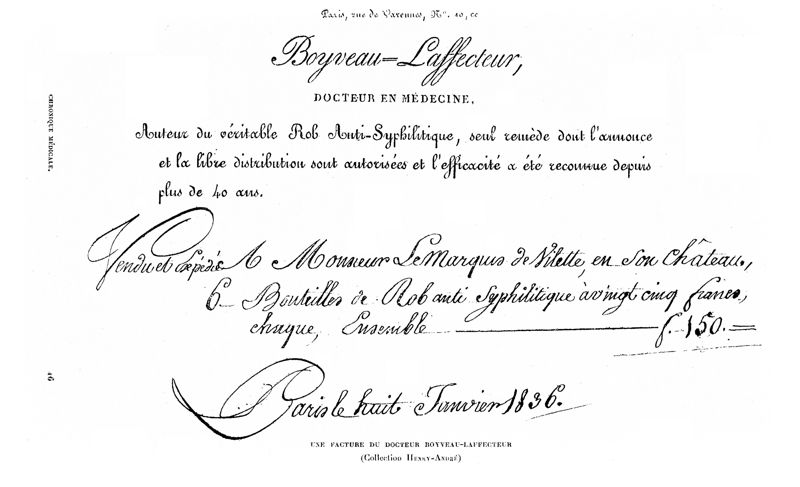 Paris, rue de Varennes, No. 10, cc
Boyveau=Laffecteur,
DOCTEUR EN MÉDECINE,
Auteur du véritable Rob Anti-Syphilitique, seul remède dont l'annonce
et la libre distribution sont autorisées et l'efficacité a été reconnue depuis
plus de 40 ans.
Vendu et Expédié A Monsieur Le Marquis de Vilette, en Son Château,
6 Bouteilles de Rob anti Syphilitique à vingt cinq francs,
chaque, Ensemble f. 150.
Paris le huit Janvier 1836.
UNE FACTURE DU DOCTEUR BOYVEAU-LAFFECTEUR
(Collection HENRY-ANDRÉ)
CHRONIQUE MÉDICALE.
46